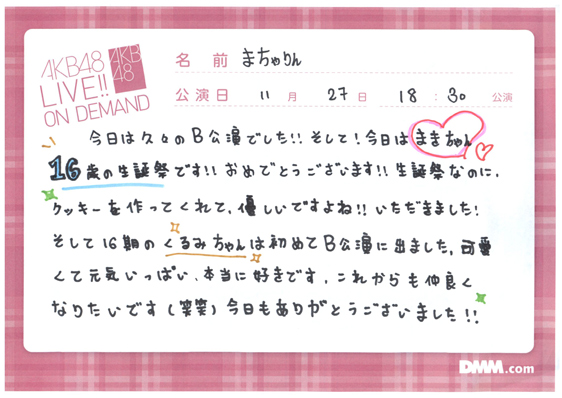 AKB48
LIVE!!
ON DEMAND
AKB
48
名前 まちゃりん
公演日 11月 27日 18:30 公演
今日は久々のB公演でした!!そして!今日はまきちゃん
16歳の生誕祭です!!おめでとうございます!!生誕祭なのに、
クッキーを作ってくれて、優しいですよね!!いただきました!
そして16期のくるみちゃんは初めてB公演に出ました。可愛
くて元気いっぱい、本当に好きです。これからも仲良く
なりたいです(笑笑)今日もありがとうございました!!
DMM.com